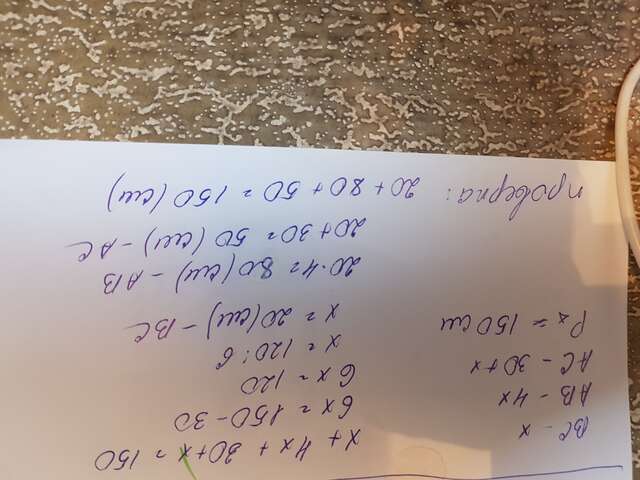 BC - x
AB - 4x
AC - 30+x
P_x = 150 см
x + 4x + 30+x = 150
6x = 150-30
6x = 120
x = 120:6
x = 20 (см) - BC
20·4= 80 (см) - AB
20+30= 50 (см) - AC
проверка: 20 + 80 + 50 = 150 (см)